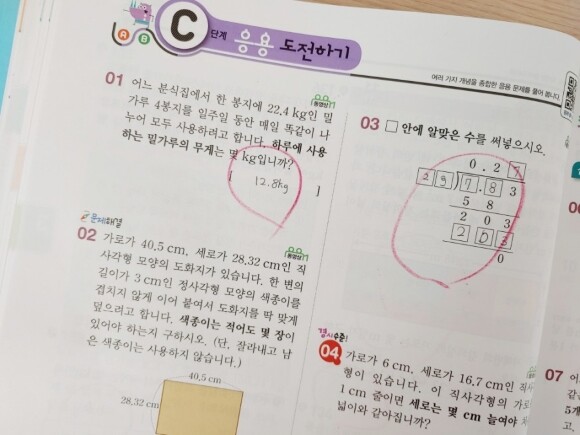 A B
C 단계 응용 도전하기
여러 가지 개념을 종합한 응용 문제를 풀어 봅니다.
01 어느 분식집에서 한 봉지에 22.4 kg인 밀
가루 4봉지를 일주일 동안 매일 똑같이 나
누어 모두 사용하려고 합니다. 하루에 사용
하는 밀가루의 무게는 몇 kg입니까?
[ 12.8kg ]
동영상
문제해결
02 가로가 40.5 cm, 세로가 28.32 cm인 직
사각형 모양의 도화지가 있습니다. 한 변의
길이가 3 cm인 정사각형 모양의 색종이를
겹치지 않게 이어 붙여서 도화지를 딱 맞게
덮으려고 합니다. 색종이는 적어도 몇 장이
있어야 하는지 구하시오. (단, 잘라내고 남
은 색종이는 사용하지 않습니다.)
동영상
40.5 cm
28.32 cm
03 □ 안에 알맞은 수를 써넣으시오.
0.2 7
2 9 ) 7.8 3
5 8
2 0 3
2 0 3
0
경시수준!
04 가로가 6 cm, 세로가 16.7 cm인 직사
형이 있습니다. 이 직사각형의 가로
1 cm 줄이면 세로는 몇 cm 늘여야 처
넓이와 같아집니까?
07 어
같은
5개
고,